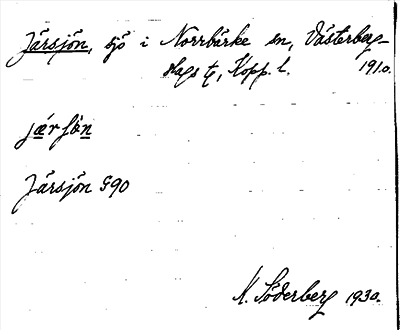 Järsjön, sjö i Norrbärke sn, Västerberg-
slags tg, Kopp. l. 1910.
jærʃön
Järsjön G90
M. Söderberg 1930.